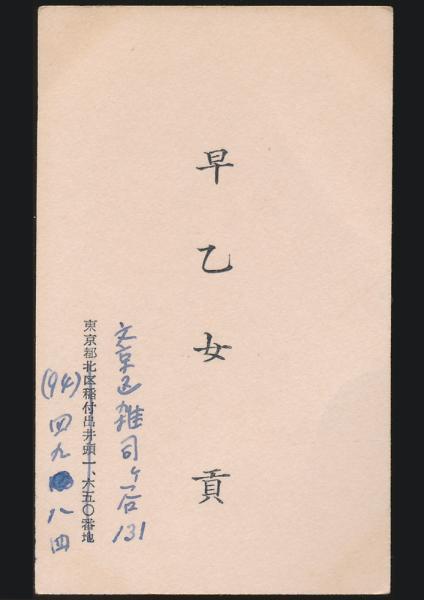 早乙女貢
文京区雑司ヶ谷131
東京都北区稲付出井頭一、六五〇番地
(94)四九八四